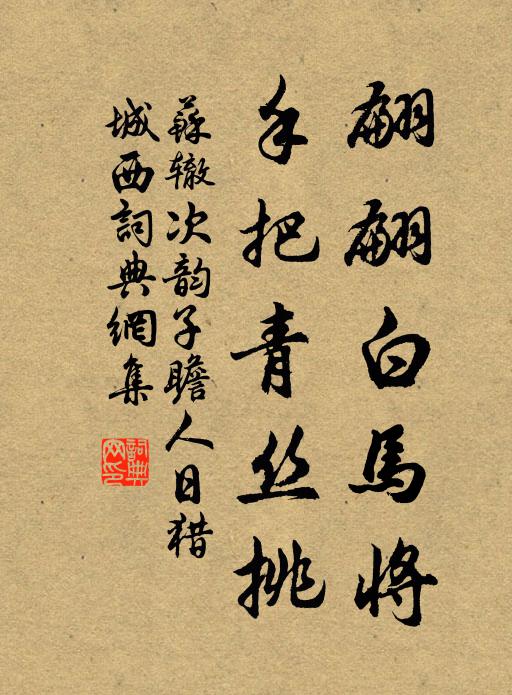 翩翩白馬將
手把青丝挑
蘇辙次韵子瞻人日猎
城西詞典網集
詞典网印